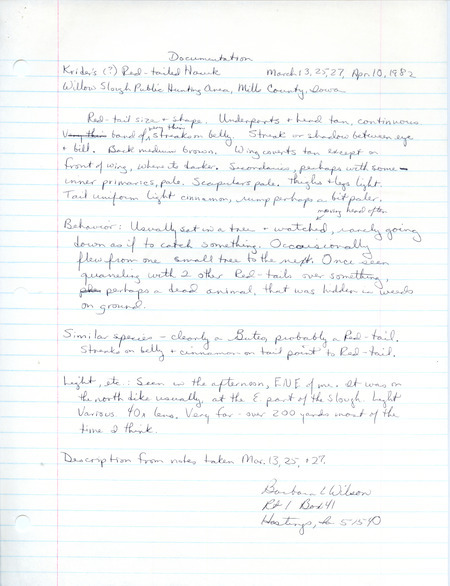 Documentation
Krider's (?) Red-tailed Hawk March 13, 25, 27, Apr. 10, 1982
Willow Slough Public Hunting Area, Mills County, Iowa
Red-tail size + shape. Underparts + head tan, continuous
band of very thin streaks on belly. Streak or shadow between eye
+ bill. Back medium brown. Wing coverts tan except on
front of wing, where its darker. Secondaries, perhaps with some
inner primaries, pale. Scapulars pale. Thighs + legs light.
Tail uniform light cinnamon, rump perhaps a bit paler.
moving head often
Behavior: Usually sat in a tree + watched, rarely going
down as if to catch something. Occasionally
flew from one small tree to the next. Once seen
quarreling with 2 other Red-tails over something,
perhaps a dead animal, that was hidden in weeds
on ground.
Similar species - clearly a Buteo, probably a Red-tail.
Streaks on belly + cinnamon on tail point to Red-tail.
Light, etc.: Seen in the afternoon, ENE of me. It was on
the north dike usually, at the E part of the Slough. Light
various. 40x lens. Very far - over 200 yards most of the
time I think.
Description from notes taken Mar. 13, 25, + 27.
Barbara L Wilson
Rt 1 Box 41
Hastings, Ia 51540